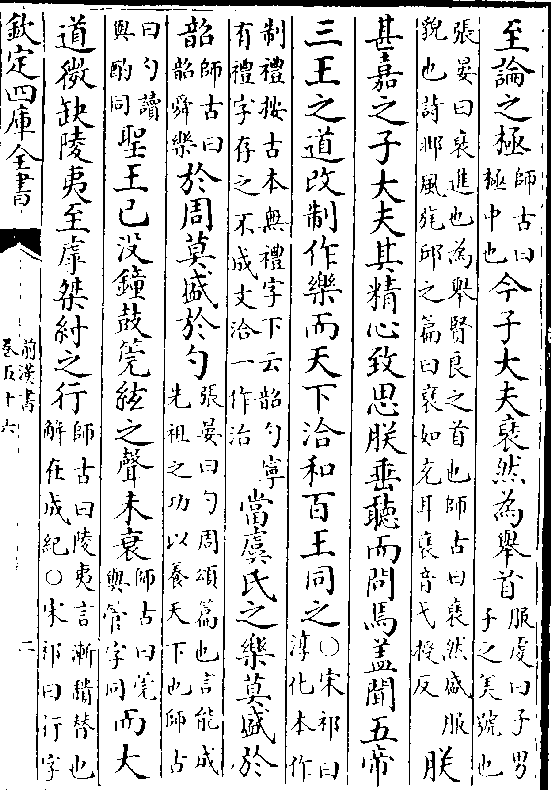 至論之極師古曰極中也今子大夫裒然為舉首服虔曰子男子之美號也
張晏曰裒進也為舉賢良之首也師古曰裒然盛服貌也詩邶風旄邱之篇曰裒如充耳裒音弋授反朕
甚嘉之子大夫其精心致思朕垂聽而問焉蓋聞五帝
三王之道改制作樂而天下洽和百王同之○宋祁曰淳化本作
制禮按古本無禮字下云韶勺寧有禮字存之不成文洽一作治當虞氏之樂莫盛於
韶師古曰韶舜樂於周莫盛於勺張晏曰勺周頌篇也言能成先祖之功以養天下也師古
曰勺讀與酌同聖王已没鐘鼓筦絃之聲未衰師古曰筦與管字同而大
道微缺陵夷至虖桀紂之行師古曰陵夷言漸頽替也解在成紀○宋祁曰行字
欽定四庫全書
前漢書
卷五十六
二